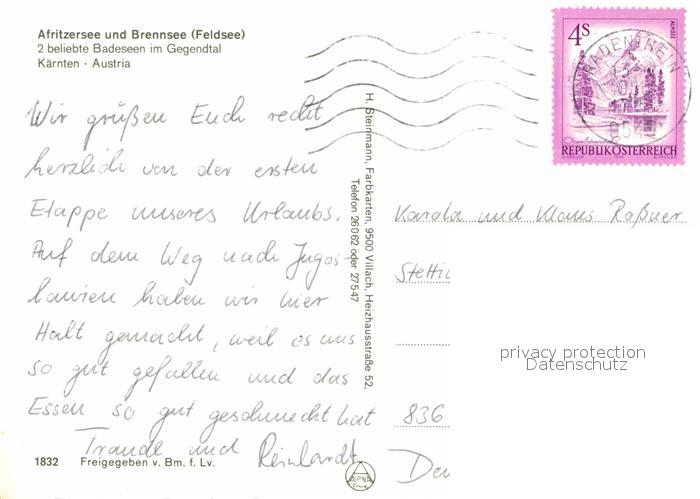 Afritzersee und Brennsee (Feldsee)
2 beliebte Badeseen im Gegendtal
Kärnten - Austria
Wir grüßen Euch recht
herzlich von der ersten
Etappe unseres Urlaubs.
Auf dem Weg nach Jugos-
lawien haben wir hier
Halt gemacht, weil es uns
so gut gefallen und das
Essen so gut geschmeckt hat
Traude und Reinhardt
1832 Freigegeben v. Bm. f. Lv.
H. Steinmann, Farbkarten, 9500 Villach, Heizhausstraße 52,
Telefon 26062 oder 27547
4S
ALMSEE
REPUBLIK ÖSTERREICH
RADENTHEIN
Karola und Klaus Raßner
Stetti
836
privacy protection
Datenschutz